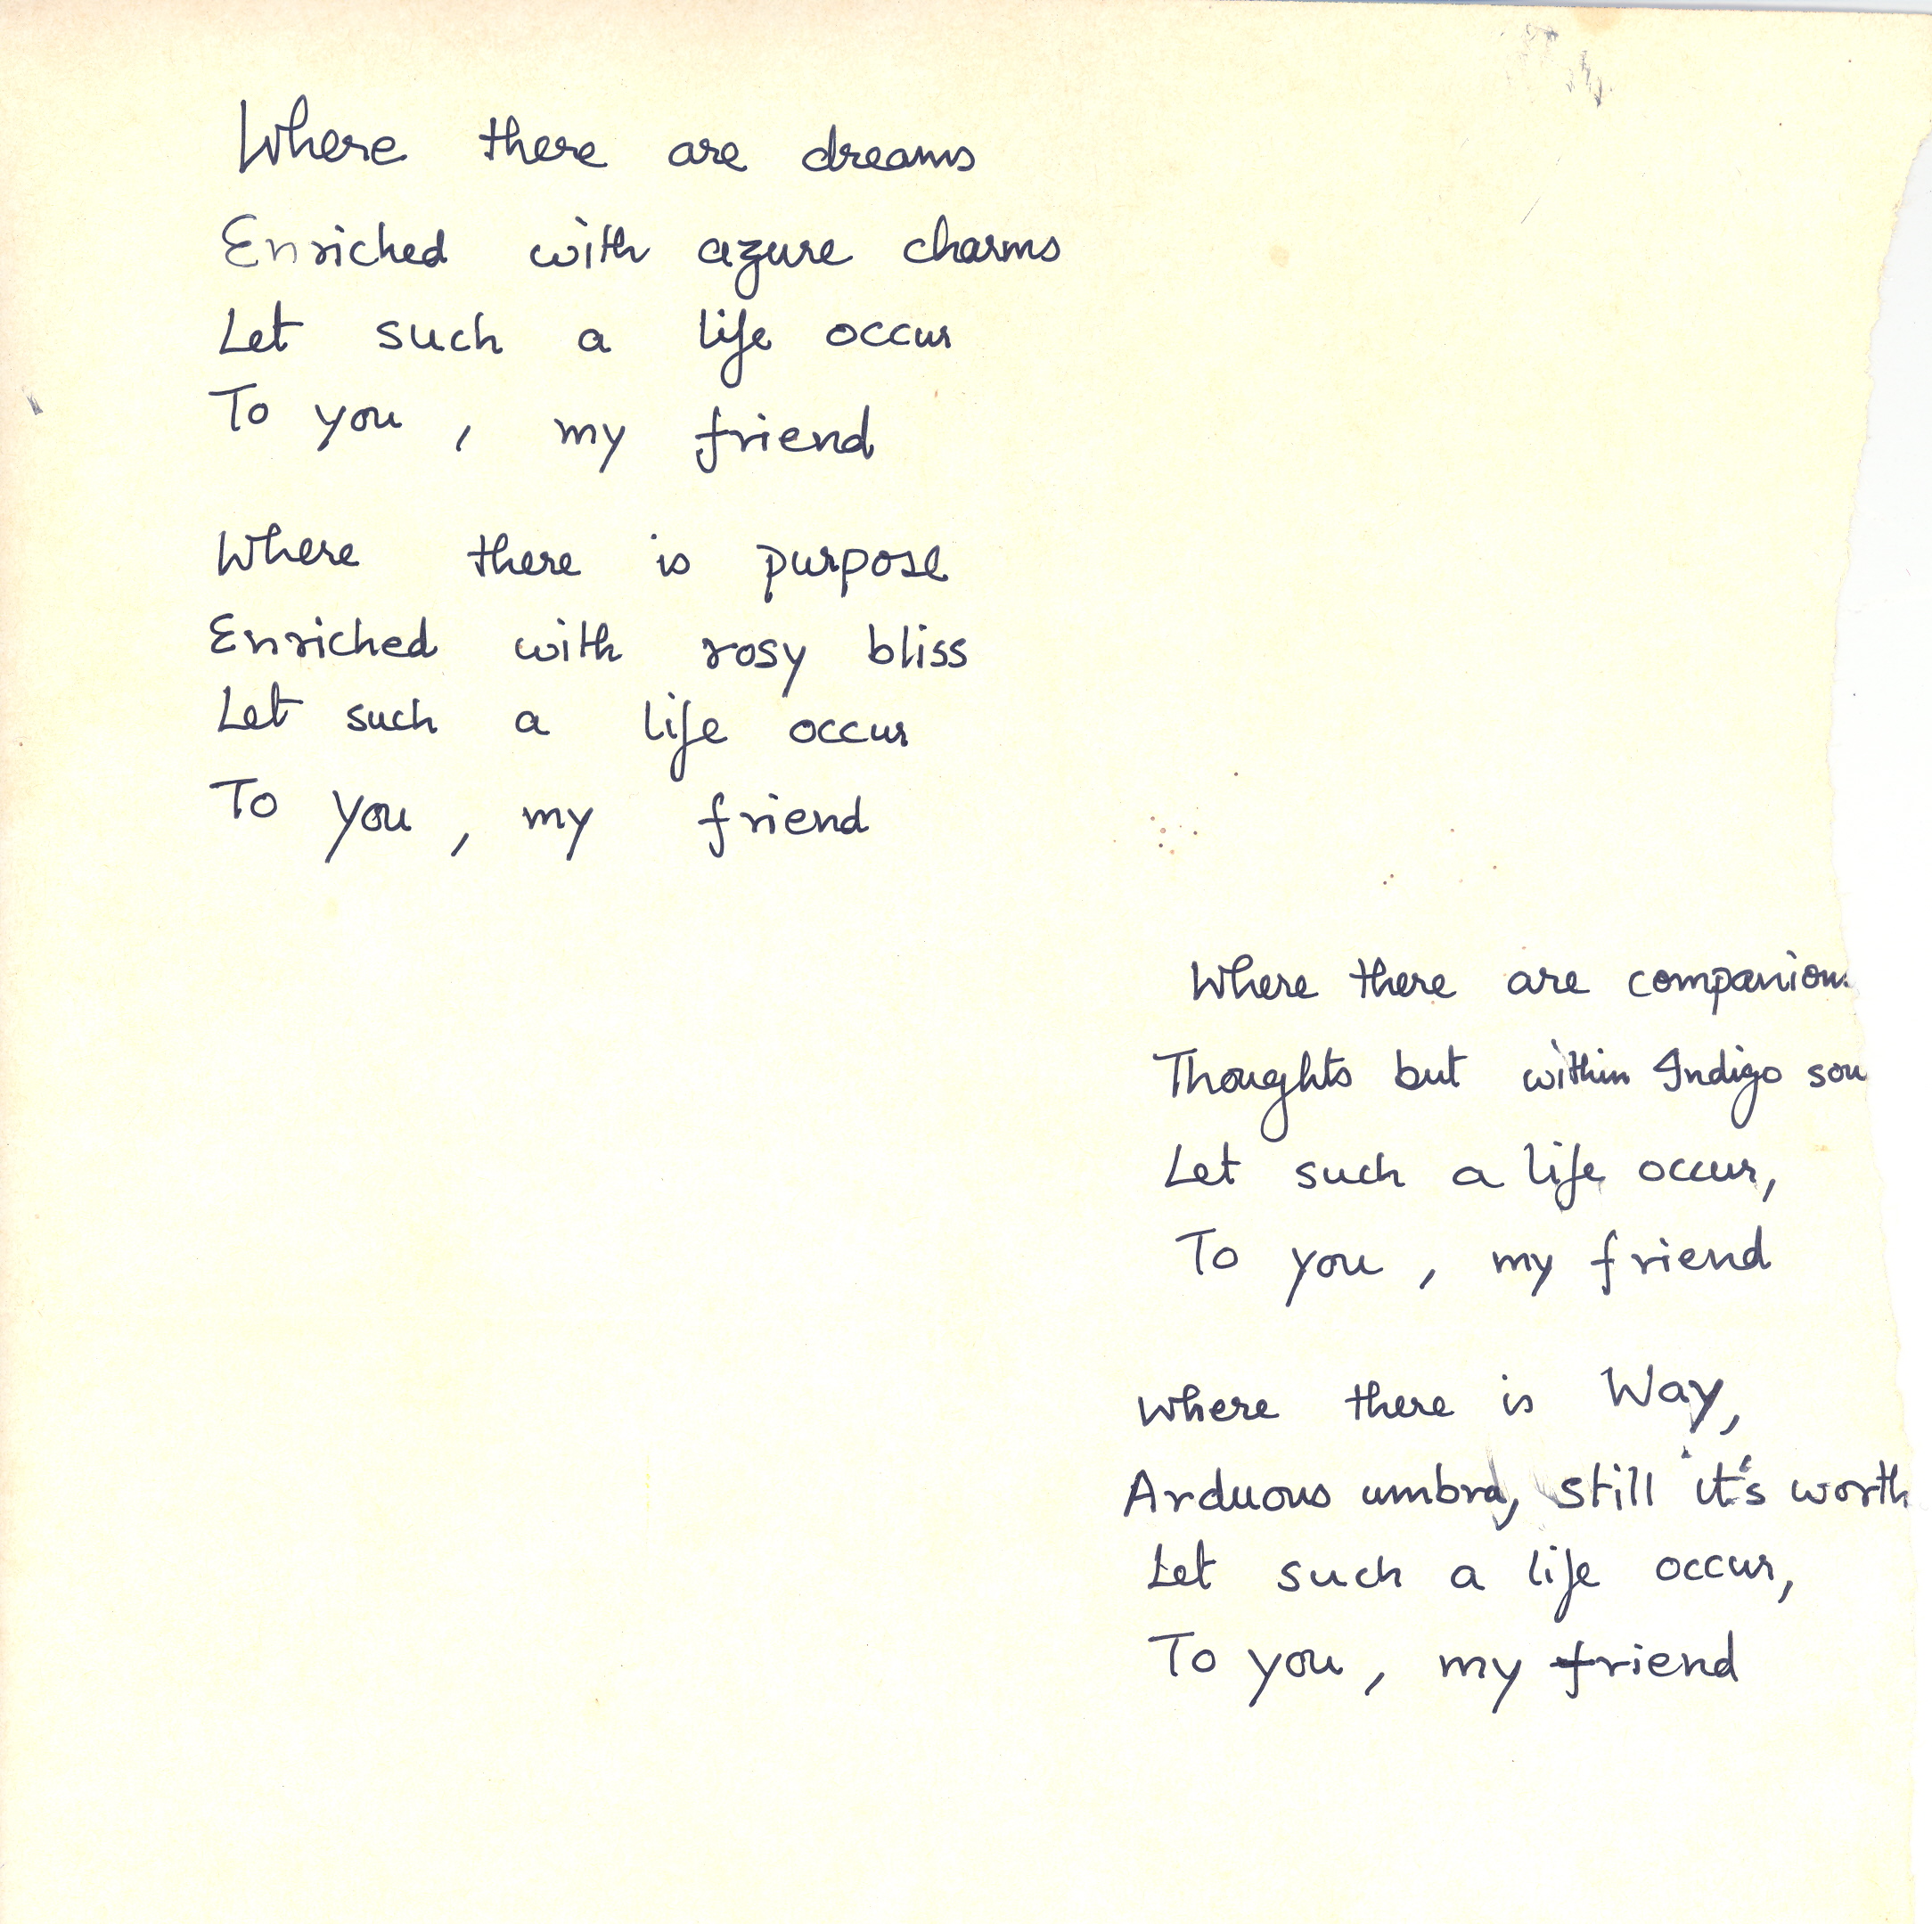 Where there are dreams
Enriched with azure charms
Let such a life occur
To you, my friend
Where there is purpose
Enriched with rosy bliss
Let such a life occur
To you, my friend
Where there are companion
Thoughts but within Indigo sou
Let such a life occur,
To you, my friend
Where there is Way,
Arduous umbra, still it's worth
Let such a life occur,
To you, my friend